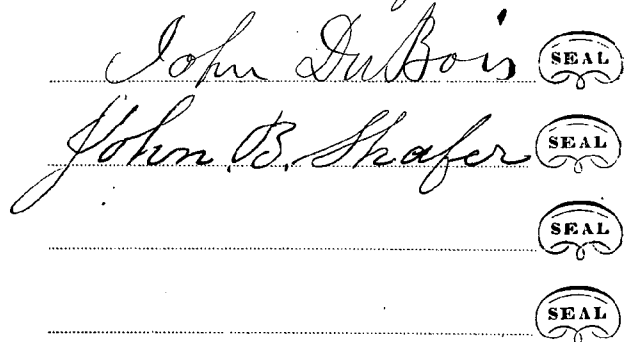 John DuBois SEAL
John. B. Shafer SEAL
SEAL
SEAL